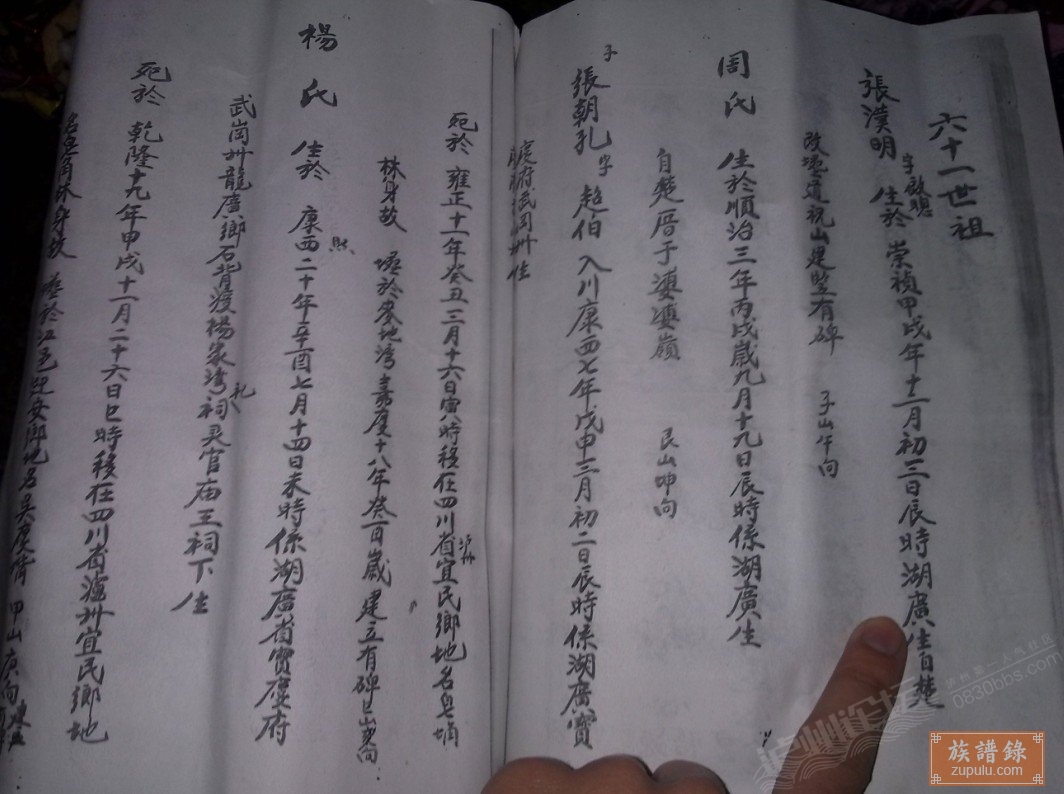 六十一世祖
張漢明 字啟聰 生於 崇禎甲戌年十二月初三日辰時湖廣生自楚
改塟道祝山建豎有碑 子山午向
周氏 生於順治三年丙戌歲九月十九日辰時係湖廣生
自楚厝于婆婆嶺 艮山坤向
子 張朝孔 字 超伯 入川康西七年戊申三月初二日辰時係湖廣寶
慶府武岡州 生
死於 雍正十一年癸丑三月十六日寅時移在四川省瀘州宜民鄉地名皂角
林身故 塟於 地灣嘉慶十八年癸酉歲建立有碑巳山亥向
楊氏 生於 康西熙二十年辛酉七月十四日未時係湖廣省寶慶府
武崗州龍廣鄉石背渡楊家灣祠灵官庙王祠下生
死於 乾隆十九年甲戌十一月二十六日巳時移在四川省瀘州宜民鄉地
名皂角林身故 塟於江邑 安鄉地名吳 甲山庚向
泸州第一人气社区
0830bbs.com
族譜錄
zupulu.com